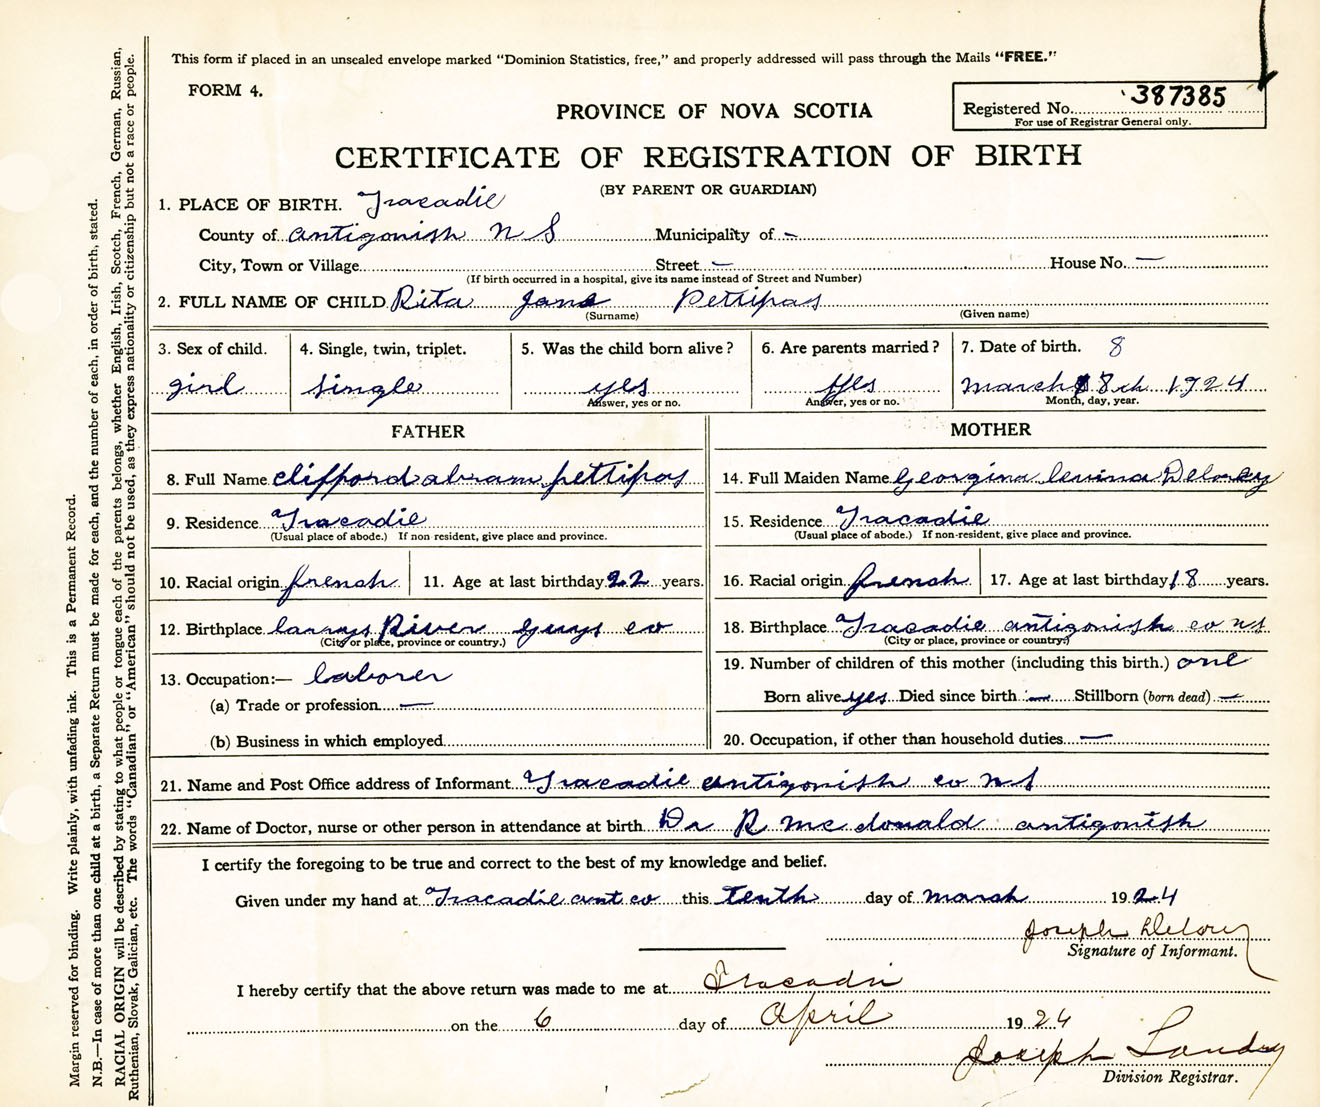 This form if placed in an unsealed envelope marked "Dominion Statistics, free," and properly addressed will pass through the Mails "FREE."
FORM 4.
Registered No. 387385
For use of Registrar General only.
PROVINCE OF NOVA SCOTIA
CERTIFICATE OF REGISTRATION OF BIRTH
(BY PARENT OR GUARDIAN)
1. PLACE OF BIRTH. Tracadie
County of antigonish N S Municipality of -
City, Town or Village Street - House No. -
(If birth occurred in a hospital, give its name instead of Street and Number)
2. FULL NAME OF CHILD Rita Jane Pettipas
(Surname) (Given name)
3. Sex of child. 4. Single, twin, triplet. 5. Was the child born alive? 6. Are parents married? 7. Date of birth. 8
girl single yes yes march 8th 1924
Answer, yes or no. Answer, yes or no. Month, day, year.
FATHER MOTHER
8. Full Name clifford abram pettipas 14. Full Maiden Name Georgina levina Delorey
9. Residence Tracadie 15. Residence Tracadie
(Usual place of abode.) If non-resident, give place and province. (Usual place of abode.) If non-resident, give place and province.
10. Racial origin french 11. Age at last birthday 22 years. 16. Racial origin french 17. Age at last birthday 18 years.
12. Birthplace larrys River guys co 18. Birthplace Tracadie antigonish co ns
(City or place, province or country.) (City or place, province or country.)
13. Occupation:— laborer 19. Number of children of this mother (including this birth.) one
(a) Trade or profession — Born alive yes Died since birth - Stillborn (born dead) -
(b) Business in which employed 20. Occupation, if other than household duties —
21. Name and Post Office address of Informant Tracadie antigonish co N S
22. Name of Doctor, nurse or other person in attendance at birth Dr R mc donald antigonish
I certify the foregoing to be true and correct to the best of my knowledge and belief.
Given under my hand at Tracadie ant co this tenth day of marsh 1924
Joseph Delorey
Signature of Informant.
I hereby certify that the above return was made to me at Tracadi
on the 6 day of April 1924
Joseph Landry
Division Registrar.
Margin reserved for binding. Write plainly, with unfading ink. This is a Permanent Record.
N.B.—In case of more than one child at a birth, a Separate Return must be made for each, and the number of each, in order of birth, stated.
RACIAL ORIGIN will be described by stating to what people or tongue each of the parents belongs, whether English, Irish, Scotch, French, German, Russian,
Ruthenian, Slovak, Galician, etc. The words "Canadian" or "American" should not be used, as they express nationality or citizenship but not a race or people.